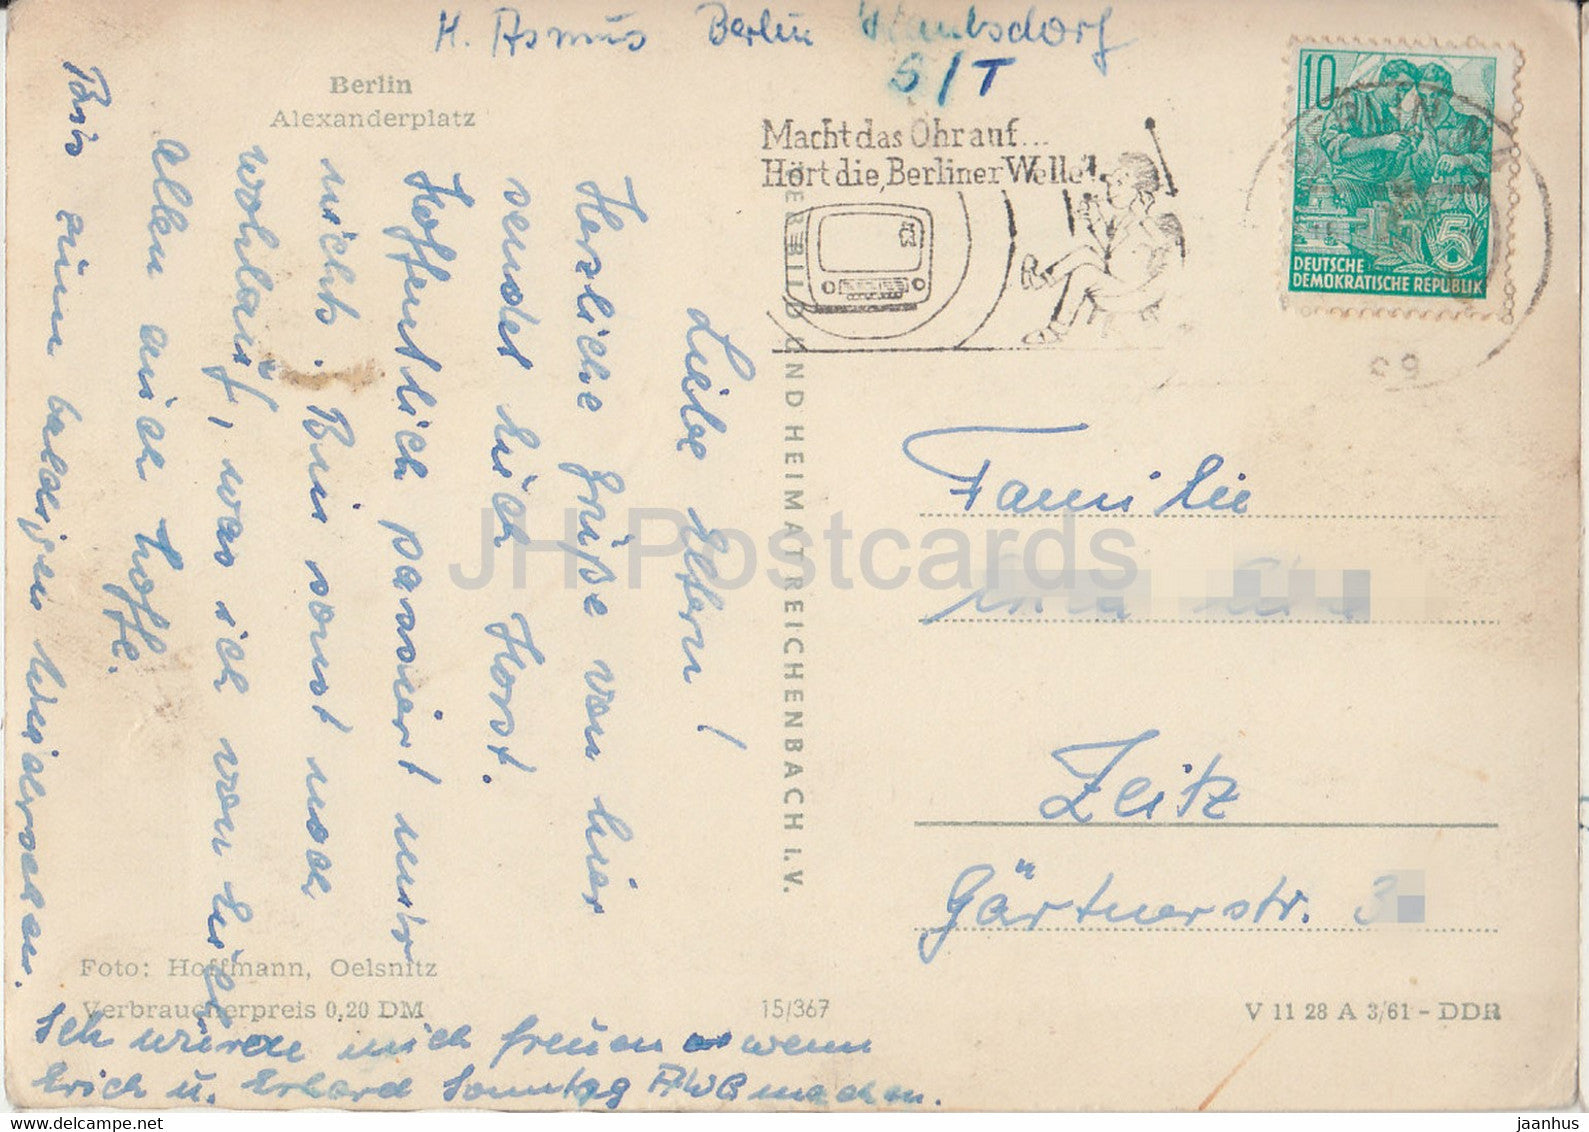 H. Asmus Berlin
S/T
Berlin
Alexanderplatz
Macht das Ohr auf...
Hört die „Berliner Welle“!
10
DEUTSCHE
DEMOKRATISCHE REPUBLIK
5
Liebe Eltern!
Herzliche Grüße von hier
sendet Euch Horst.
Hoffentlich passiert mir
nichts. Bin sonst noch
wohlauf, was ich von Euch
allen auch hoffe.
Bis zum baldigen Wiedersehen.
Ich würde mich freuen wenn
Erich u. Erhard Sonntag machen.
UND HEIMAT REICHENBACH I. V.
Familie
Zeitz
Gärtnerstr. 3
Foto: Hoffmann, Oelsnitz
Verbraucherpreis 0,20 DM
15/367
V 11 28 A 3/61 - DDR
JH Postcards
www.delcampe.net
jaanhus